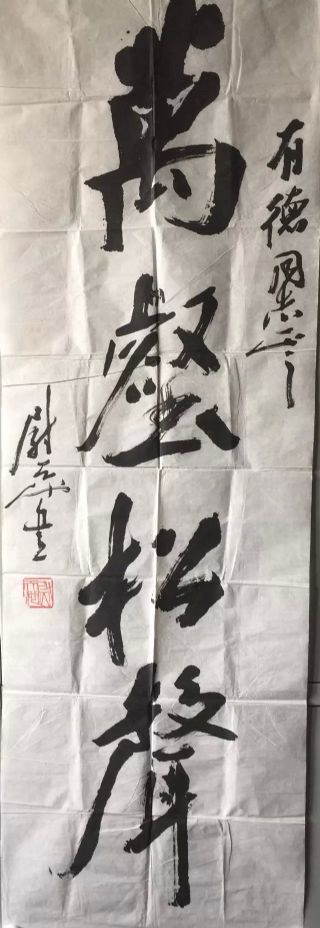 有德同志正之
萬壑松聲
尉天池書